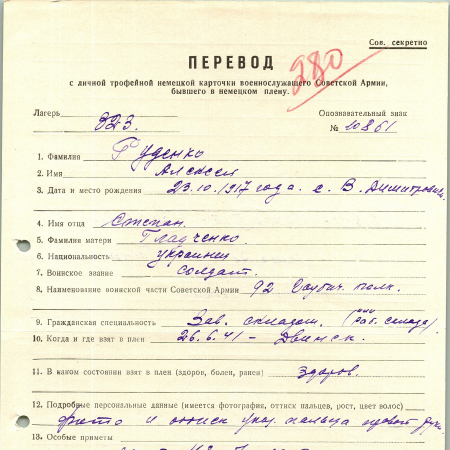 Сов. секретно
ПЕРЕВОД
280
с личной трофейной немецкой карточки военнослужащего Советской Армии,
бывшего в немецком плену.
Лагерь 323.
Опознавательный знак
№ 10861
1. Фамилия Руденко
2. Имя Алексей
3. Дата и место рождения 23.10.1917 года. с. В. Димитровка.
4. Имя отца Степан.
5. Фамилия матери Гладченко
6. Национальность украинец
7. Воинское звание солдат.
8. Наименование воинской части Советской Армии 92 полк.
9. Гражданская специальность Зав. складом. (или раб. склада)
10. Когда и где взят в плен 26.6.41 – Двинск.
11. В каком состоянии взят в плен (здоров, болен, ранен) здоров.
12. Подробные персональные данные (имеется фотография, оттиск пальцев, рост, цвет волос)
фото и оттиск указ. пальца правой руки
13. Особые приметы